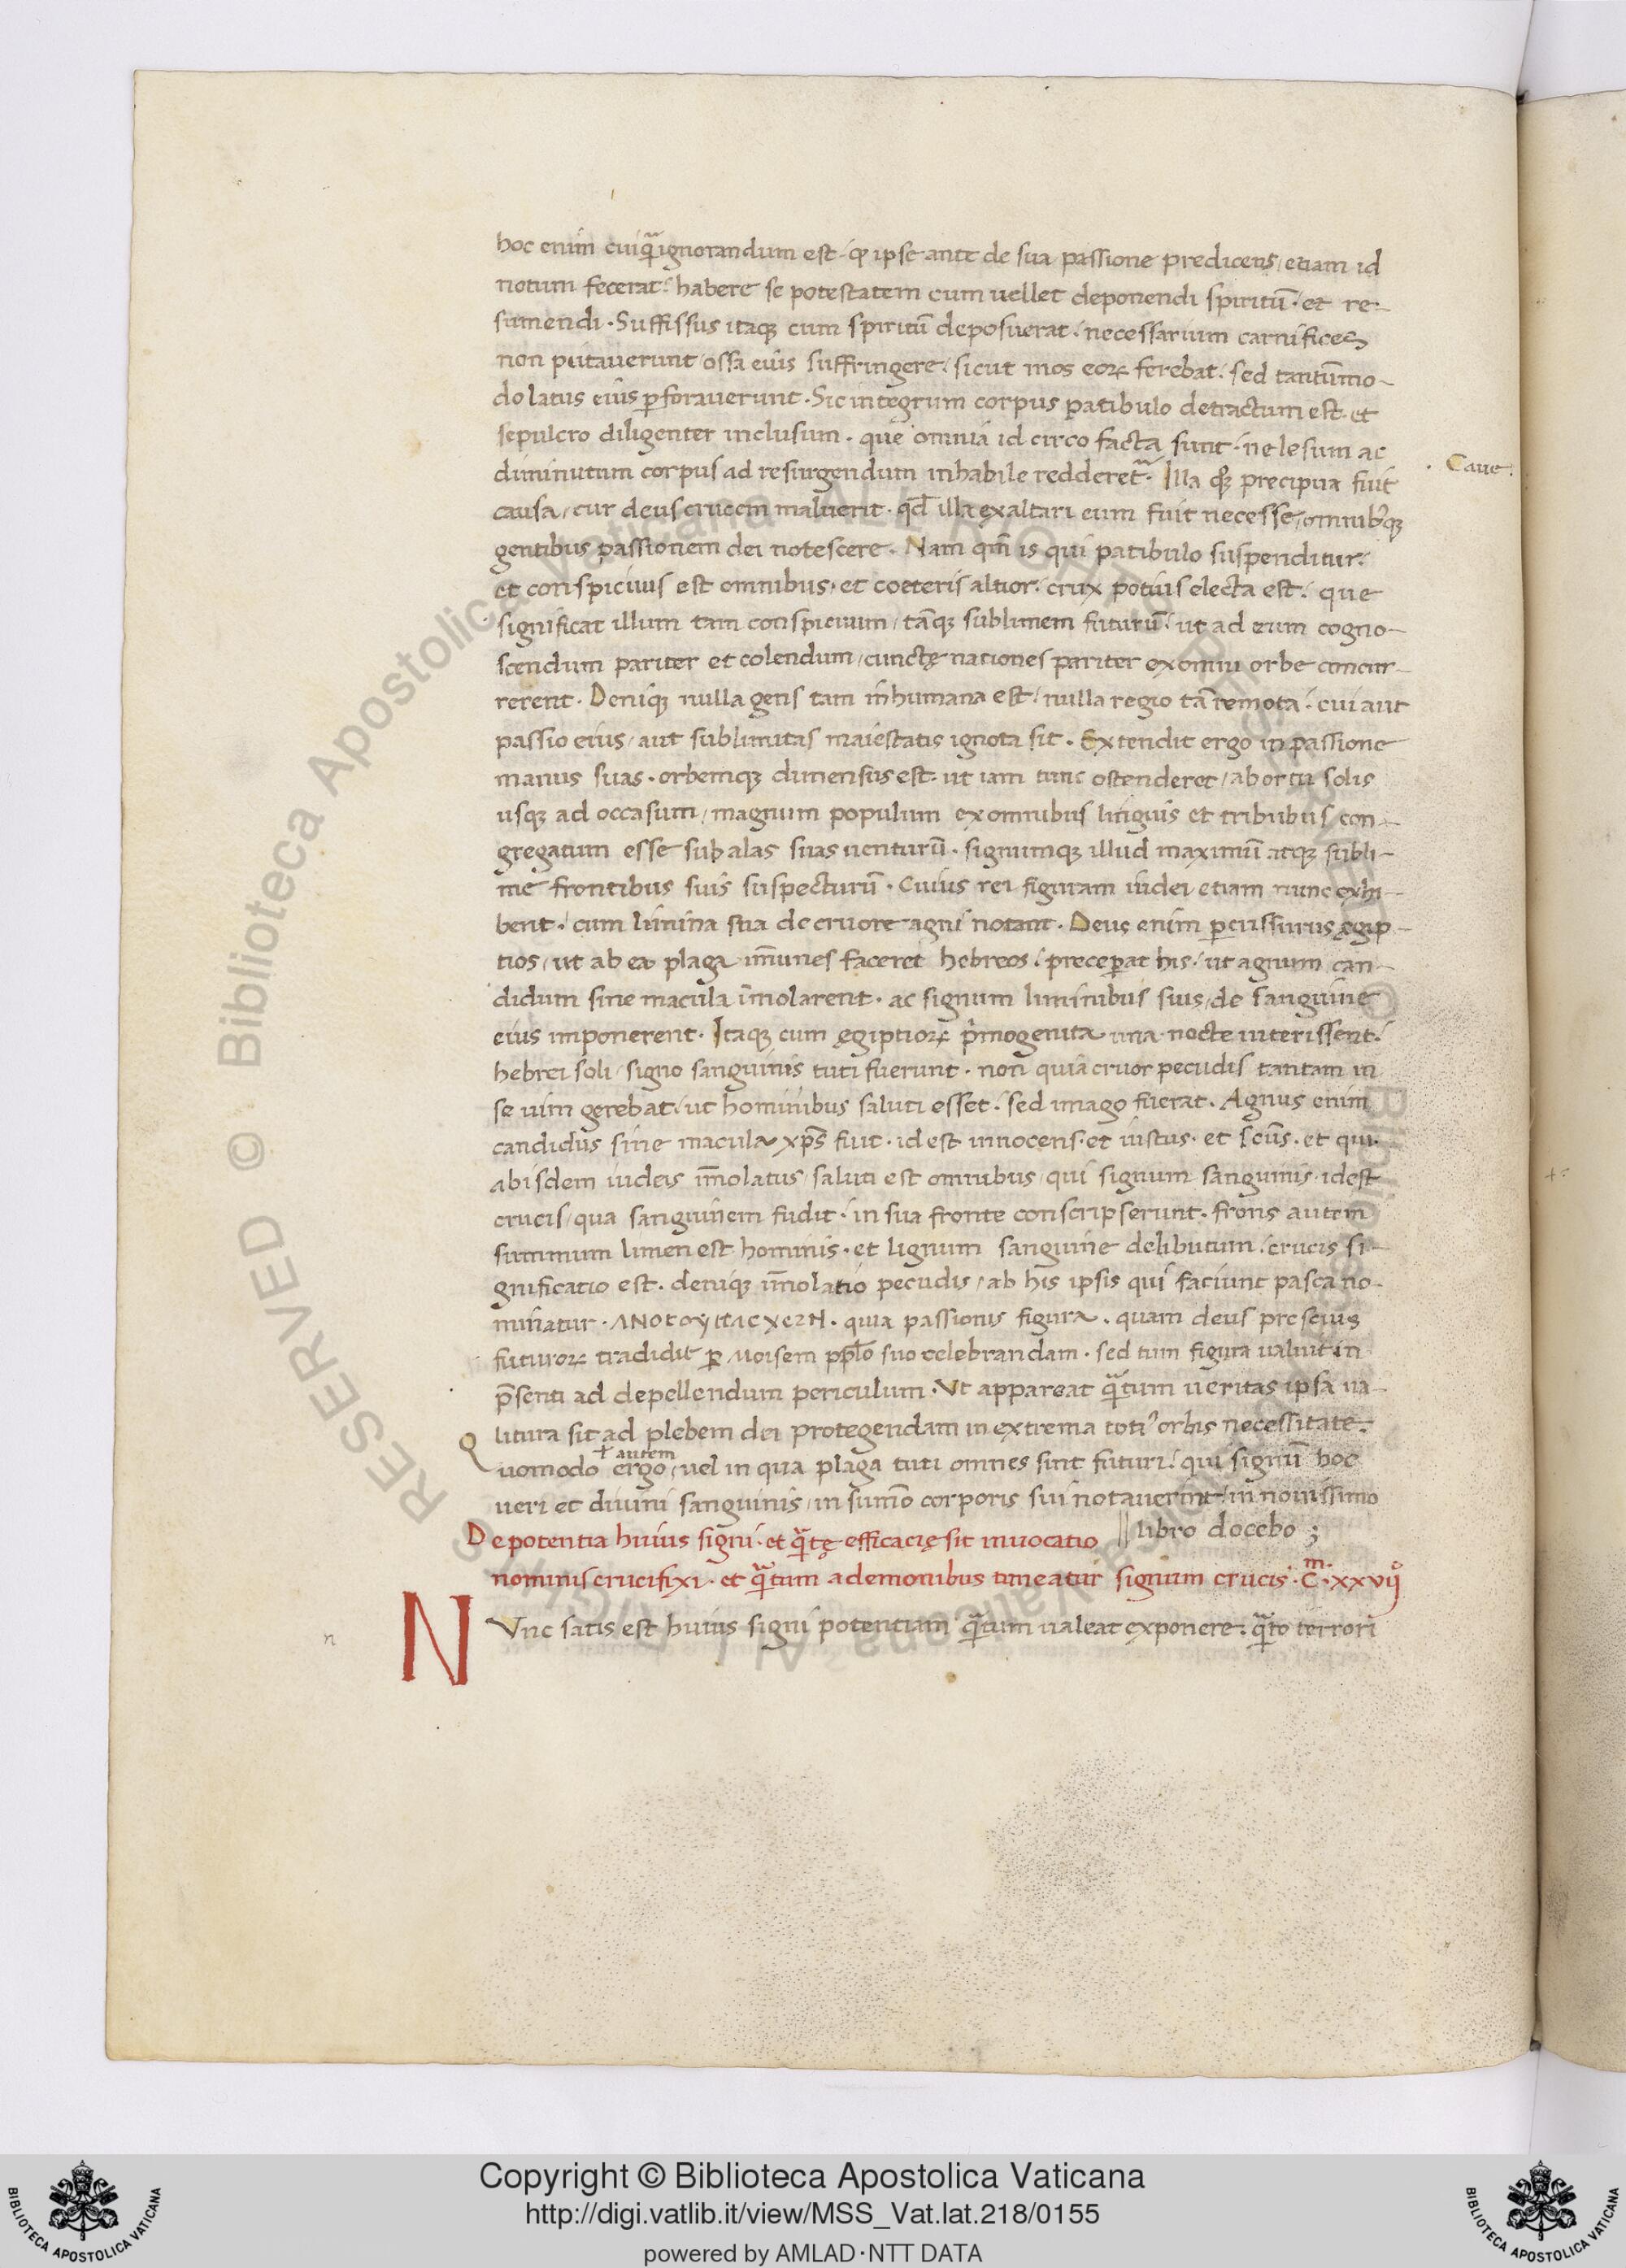 hoc enim cuiq̃ ignorandum est · qͦ ipse ante de sua passione predicens / etiam id
notum fecerat : habere se potestatem cum uellet deponendi spiritũ · et re-
sumendi · Suffissus itaqꝫ cum spiritũ deposuerat : necessarium carnifices
non putauerunt / ossa eius suffringere : sicut mos eoꝝ ferebat : sed tantũmo-
do latus eius ꝑforauerunt · Sic integrum corpus patibulo detractum est · et
sepulcro diligenter inclusum · que omnia id circo facta sunt : ne lesum ac
diminutum corpus ad resurgendum inhabile redderet᷑ · Illa qꝫ precipua fuit
· Caue :
causa / cur deus crucem maluerit · qđ illa exaltari eum fuit necesse / omnibꝰqꝫ
gentibus passionem dei notescere · Nam qm̃ is qui patibulo suspenditur :
et conspicuus est omnibus · et coeteris altior : crux potius electa est : que
significat illum tam conspicuum / tãqꝫ sublimem futurũ : ut ad eum cogno-
scendum pariter et colendum / cunctę nationes pariter ex omni orbe concur-
rerent · Deniqꝫ nulla gens tam inhumana est : nulla regio tã remota : cui aut
passio eius / aut sublimitas maiestatis ignota sit · Extendit ergo in passione
manus suas · orbemqꝫ dimensus est · ut iam tunc ostenderet / ab ortu solis
usqꝫ ad occasum / magnum populum ex omnibus linguis et tribubus con-
gregatum esse sub alas suas uenturũ · signumqꝫ illud maximũ atqꝫ subli-
me frontibus suis suspecturũ · Cuius rei figuram iudei etiam nunc exhi-
bent : cum limina sua de cruore agni notant · Deus enim ꝑcussurus ęgip-
tios / ut ab ea plaga im̃unes faceret hebreos : preceꝑat his : ut agnum can-
didum sine macula im̃olarent · ac signum liminibus suis / de sanguine
eius imponerent · Itaqꝫ cum ęgiptioꝝ p̃mogenita una nocte interissent :
hebrei soli / signo sanguinis tuti fuerunt · non quia cruor pecudis tantam in
se uim gerebat / ut hominibus saluti esset : sed imago fuerat · Agnus enim
candidus sine macula xp̃s fuit · id est innocens · et iustus · et sc̃us · et qui
ab isdem iudeis im̃olatus / saluti est omnibus / qui signum sanguinis · id est
crucis / qua sanguinem fudit · in sua fronte conscripserunt · frons autem
summum limen est hominis · et lignum sanguine delibutum : crucis si-
gnificatio est · deniqꝫ im̃olatio pecudis / ab his ipsis qui faciunt pasca no-
minatur · ΛΝΟΤΟΥΠΑϹΧΕΖΝ · quia passionis figura · quam deus prescius
futuroꝝ tradidit ꝑ moisem pp̃lo suo celebrandam · sed tum figura ualuit in
p̃senti ad depellendum periculum · Vt appareat q̃tum ueritas ipsa ua-
litura sit ad plebem dei protegendam in extrema totiꝰ orbis necessitate ·
+ autem
Quomodo ergo / uel in qua plaga tuti omnes sint futuri : qui signũ hoc
ueri et diuini sanguinis / in sum̃o corporis sui notauerint / in nouissimo
|| libro docebo ;
De potentia huius signi · et q̃tę efficacię sit inuocatio
nominis crucifixi · et q̃tum a demonibus timeatur signum crucis · C̃ᵐ · xxvijº
NVnc satis est huius signi potentiam q̃tum ualeat exponere : q̃to terrori
n
Copyright © Biblioteca Apostolica Vaticana
http://digi.vatlib.it/view/MSS_Vat.lat.218/0155
powered by AMLAD·NTT DATA
BIBLIOTECA APOSTOLICA VATICANA
BIBLIOTECA APOSTOLICA VATICANA